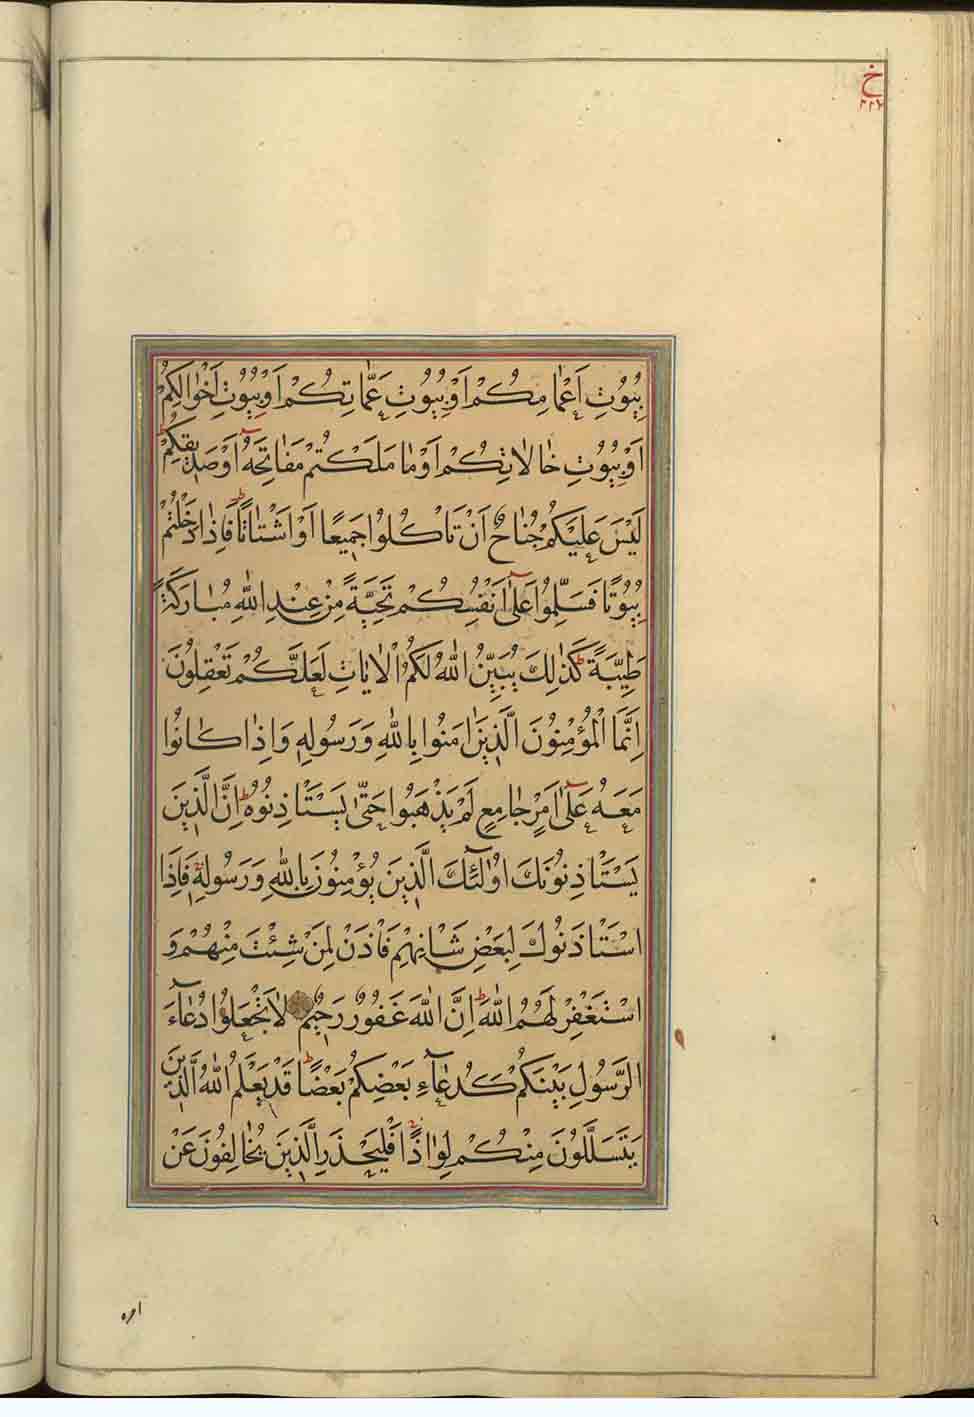 خ
بُيُوتِ اَعْمَامِكُمْ اَوْ بُيُوتِ عَمَّاتِكُمْ اَوْ بُيُوتِ اَخْوَالِكُمْ
اَوْ بُيُوتِ خَالَاتِكُمْ اَوْ مَا مَلَكْتُمْ مَفَاتِحَهُ اَوْ صَدِيقِكُمْ
لَيْسَ عَلَيْكُمْ جُنَاحٌ اَنْ تَاْكُلُوا جَمِيعًا اَوْ اَشْتَاتًا فَاِذَا دَخَلْتُمْ
بُيُوتًا فَسَلِّمُوا عَلٰى اَنْفُسِكُمْ تَحِيَّةً مِنْ عِنْدِ اللّٰهِ مُبَارَكَةً
طَيِّبَةً كَذٰلِكَ يُبَيِّنُ اللّٰهُ لَكُمُ الْاٰيَاتِ لَعَلَّكُمْ تَعْقِلُونَ
اِنَّمَا الْمُؤْمِنُونَ الَّذِينَ اٰمَنُوا بِاللّٰهِ وَرَسُولِهِ وَاِذَا كَانُوا
مَعَهُ عَلٰى اَمْرٍ جَامِعٍ لَمْ يَذْهَبُوا حَتّٰى يَسْتَاْذِنُوهُ اِنَّ الَّذِينَ
يَسْتَاْذِنُونَكَ اُولٰئِكَ الَّذِينَ يُؤْمِنُونَ بِاللّٰهِ وَرَسُولِهِ فَاِذَا
اسْتَاْذَنُوكَ لِبَعْضِ شَاْنِهِمْ فَاْذَنْ لِمَنْ شِئْتَ مِنْهُمْ وَ
اسْتَغْفِرْ لَهُمُ اللّٰهَ اِنَّ اللّٰهَ غَفُورٌ رَحِيمٌ لَا تَجْعَلُوا دُعَاءَ
الرَّسُولِ بَيْنَكُمْ كَدُعَاءِ بَعْضِكُمْ بَعْضًا قَدْ يَعْلَمُ اللّٰهُ الَّذِينَ
يَتَسَلَّلُونَ مِنْكُمْ لِوَاذًا فَلْيَحْذَرِ الَّذِينَ يُخَالِفُونَ عَنْ